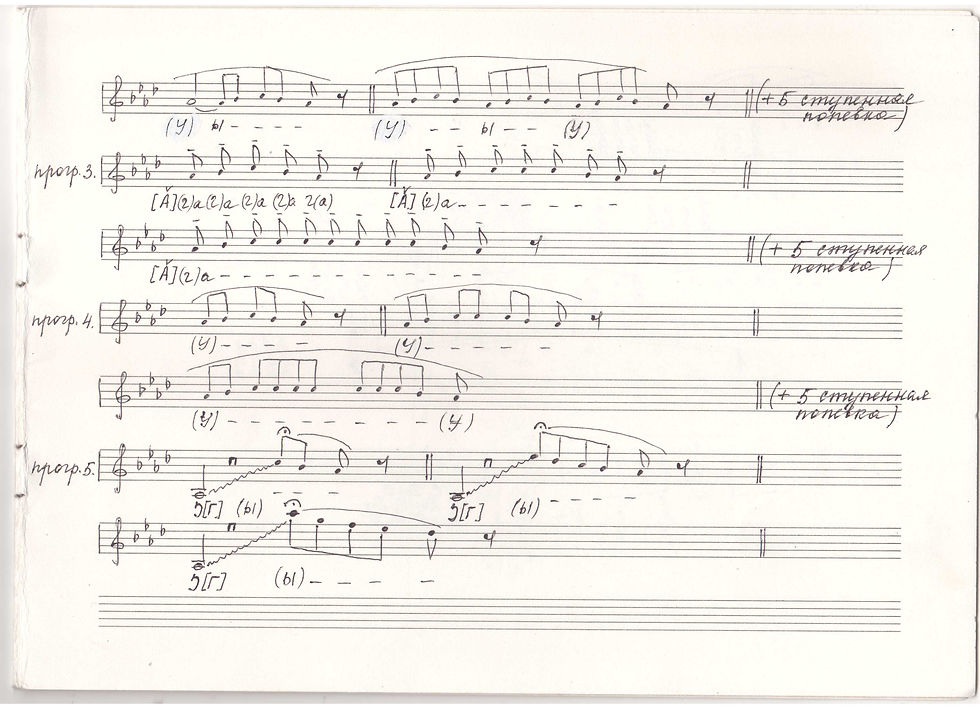 (У) ы - - - - (У) - - ы - - (У) (+ 5 ступенная
попевка)
прогр. 3.
[Ǎ](г)а (г)а (г)а (г)а г(а) [Ǎ](г)а - - - - - -
[Ǎ](г)а - - - - - - - - - - - - (+ 5 ступенная
попевка)
прогр. 4.
(У) - - - - (У) - - - - -
(У) - - - - - - - - (У) (+ 5 ступенная
попевка)
прогр. 5.
Э[Г] (ы) - - - Э[Г] (ы) - - - -
Э[Г] (ы) - - - -